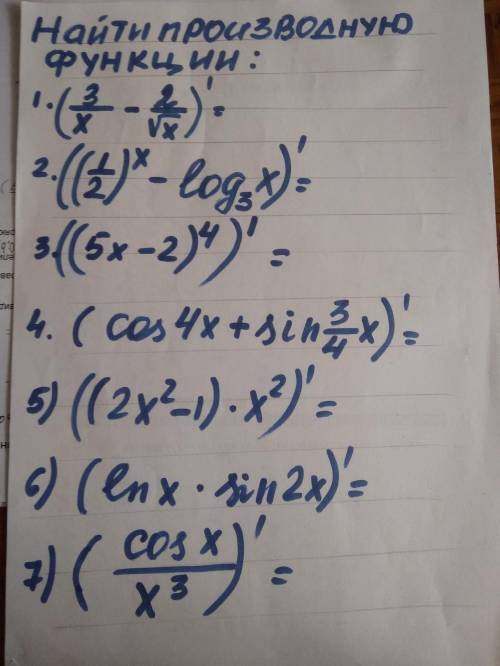 Найти производную
функции:
1. (3/x - 2/√x)' =
2. ((1/2)^x - log₃x)' =
3. ((5x-2)⁴)' =
4. (cos4x + sin 3/4 x)' =
5) ((2x²-1)·x²)' =
6) (ln x · sin2x)' =
7) (cos x / x³)' =